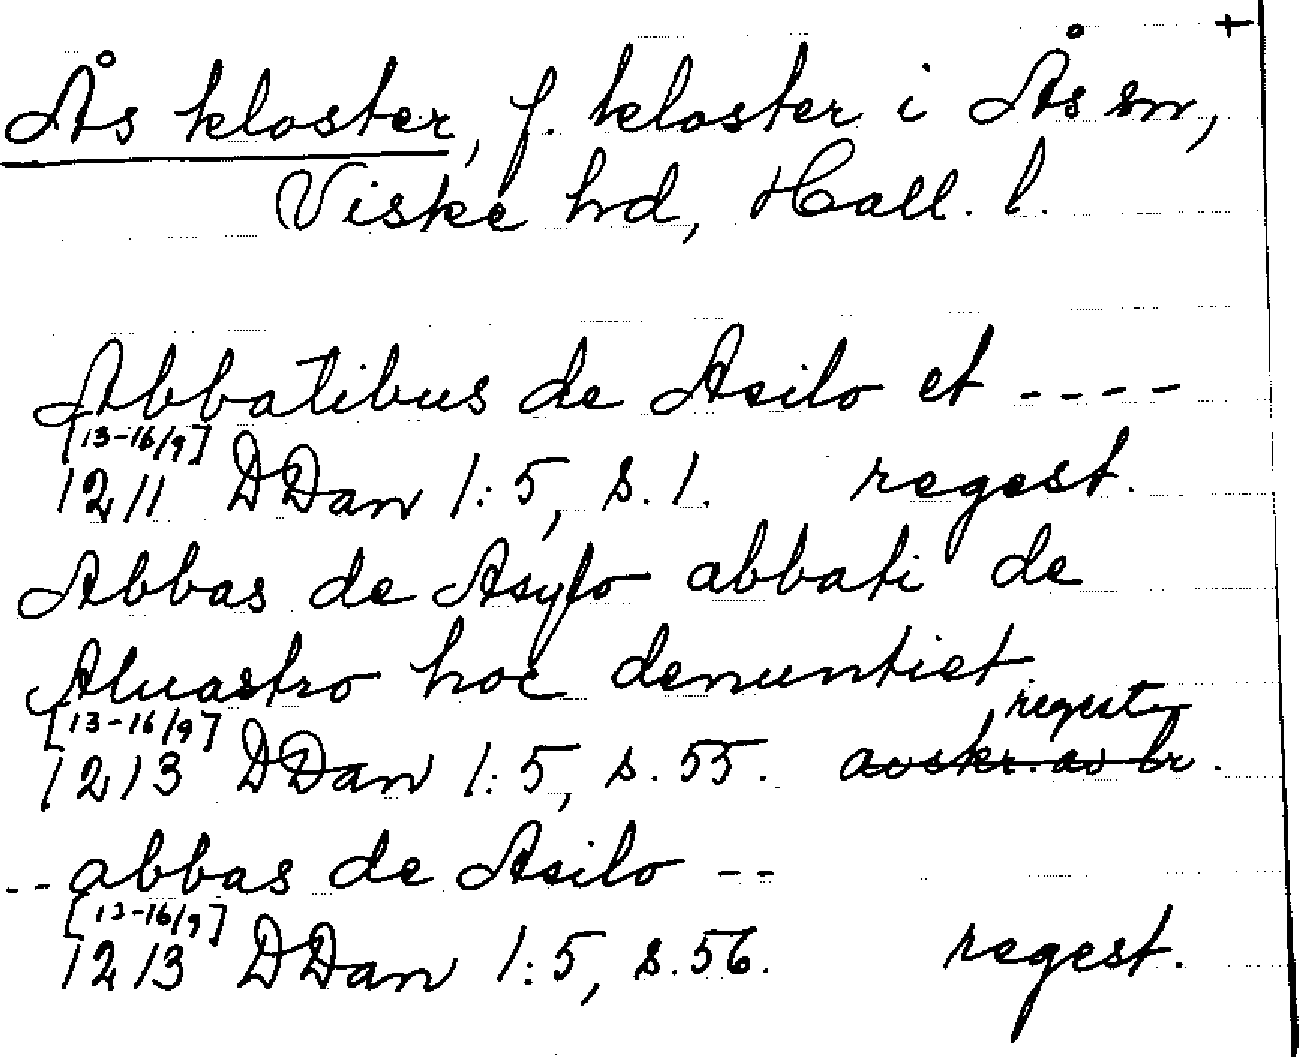 +
Ås kloster, f. kloster i Ås sn,
Viske hd, Hall. l.
Abbatibus de Asilo et ----
[13-16/9]
1211 DDan 1:5, s. 1. regest.
Abbas de Asylo abbati de
Aluastro hoc denuntiet
[13-16/9] regest
1213 DDan 1:5, s. 55. avskr. av br.
-- abbas de Asilo --
[13-16/9]
1213 DDan 1:5, s. 56. regest.